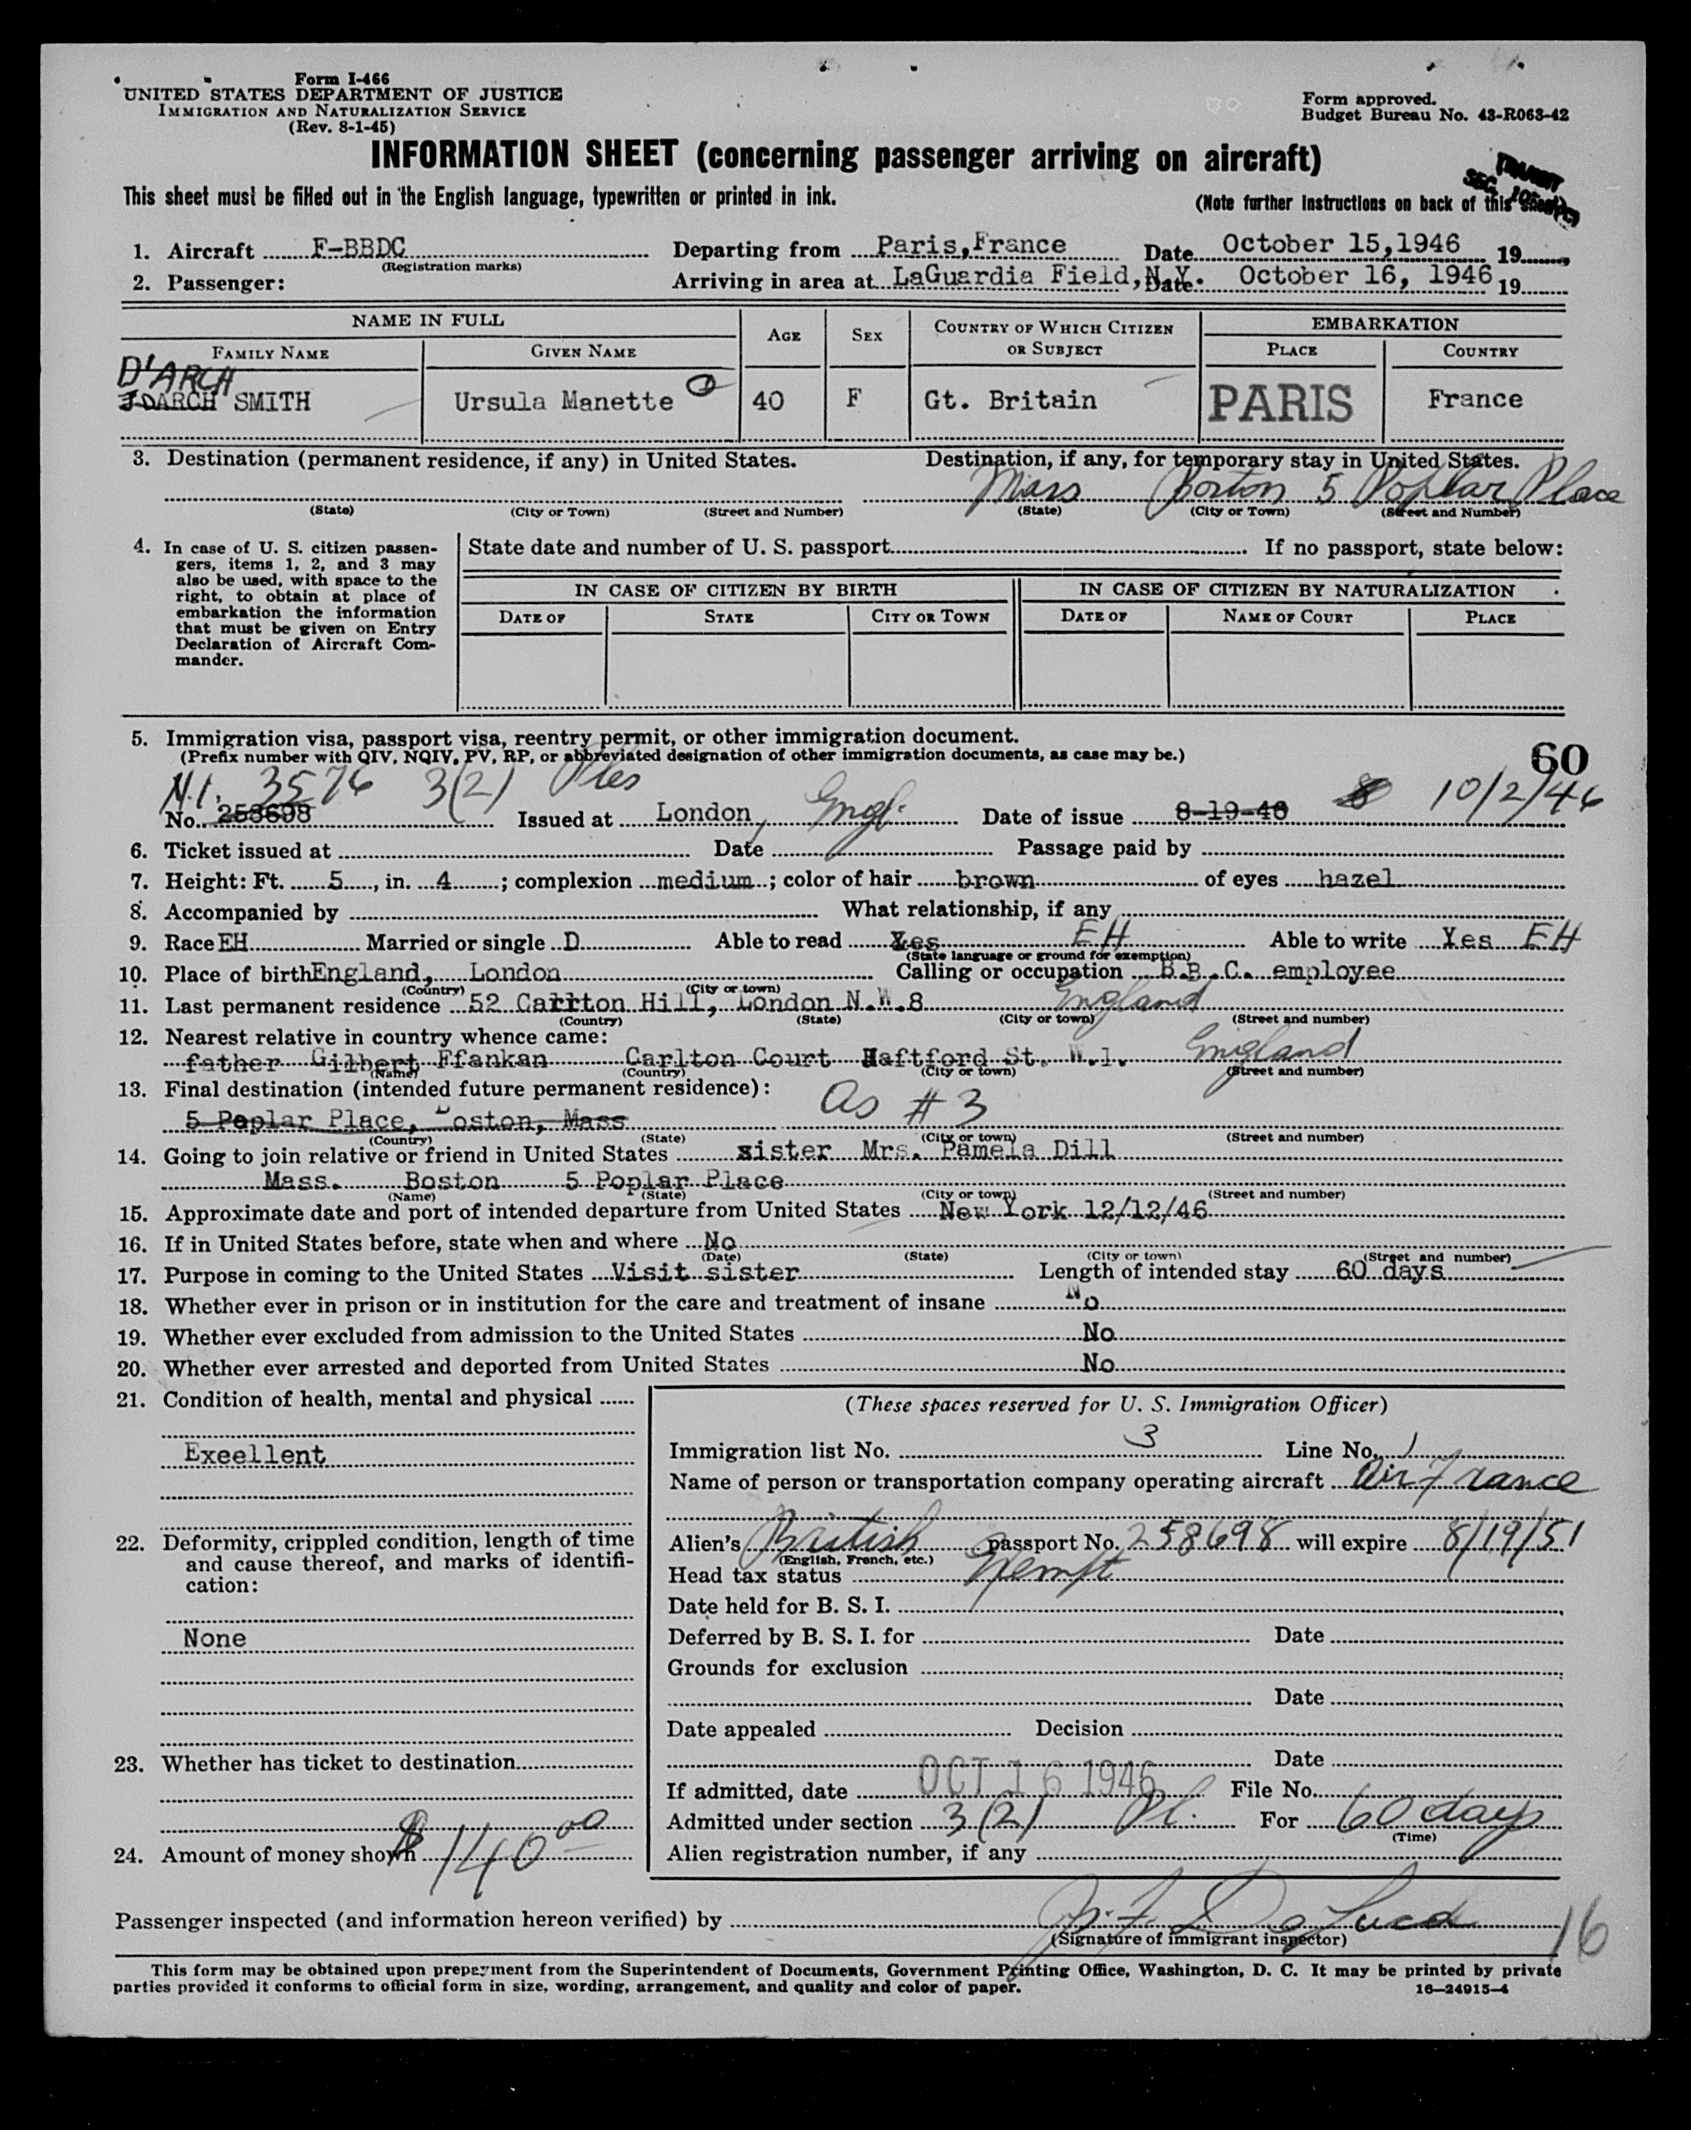 Form I-466
UNITED STATES DEPARTMENT OF JUSTICE
IMMIGRATION AND NATURALIZATION SERVICE
(Rev. 8-1-45)
Form approved.
Budget Bureau No. 43-R063-42
INFORMATION SHEET (concerning passenger arriving on aircraft)
TRANSIT
This sheet must be filled out in the English language, typewritten or printed in ink.
(Note further instructions on back of this sheet)
1. Aircraft F-BBDC Departing from Paris,France Date October 15,1946 19
(Registration marks)
2. Passenger: Arriving in area at LaGuardia Field, N.Y. Date October 16, 1946 19
NAME IN FULL AGE SEX COUNTRY OF WHICH CITIZEN OR SUBJECT EMBARKATION
FAMILY NAME GIVEN NAME PLACE COUNTRY
D'ARCH
J DARCH SMITH Ursula Manette 40 F Gt. Britain PARIS France
3. Destination (permanent residence, if any) in United States. Destination, if any, for temporary stay in United States.
Mass Boston 5 Poplar Place
(State) (City or Town) (Street and Number) (State) (City or Town) (Street and Number)
4. In case of U. S. citizen passen-
gers, items 1, 2, and 3 may
also be used, with space to the
right, to obtain at place of
embarkation the information
that must be given on Entry
Declaration of Aircraft Com-
mander.
State date and number of U. S. passport If no passport, state below:
IN CASE OF CITIZEN BY BIRTH IN CASE OF CITIZEN BY NATURALIZATION
DATE OF STATE CITY OR TOWN DATE OF NAME OF COURT PLACE
5. Immigration visa, passport visa, reentry permit, or other immigration document.
(Prefix number with QIV, NQIV, PV, RP, or abbreviated designation of other immigration documents, as case may be.)
60
3576 3(2) 10/2/46
No. 258698 Issued at London, Engl. Date of issue 8-19-46
6. Ticket issued at Date Passage paid by
7. Height: Ft. 5, in. 4; complexion medium; color of hair brown of eyes hazel
8. Accompanied by What relationship, if any
9. Race EH Married or single D Able to read Yes EH Able to write Yes EH
(State language or ground for exemption)
10. Place of birth England, London Calling or occupation B.B.C. employee
(Country) (City or town)
11. Last permanent residence 52 Carlton Hill, London N.W.8 England
(Country) (State) (City or town) (Street and number)
12. Nearest relative in country whence came:
father Gilbert Ffankan Carlton Court Haftford St. W.1. England
(Name) (Country) (City or town) (Street and number)
13. Final destination (intended future permanent residence):
5 Poplar Place, Boston, Mass As #3
(Country) (State) (City or town) (Street and number)
14. Going to join relative or friend in United States sister Mrs. Pamela Dill
Mass. Boston 5 Poplar Place
(Name) (State) (City or town) (Street and number)
15. Approximate date and port of intended departure from United States New York 12/12/46
16. If in United States before, state when and where No
(Date) (State) (City or town) (Street and number)
17. Purpose in coming to the United States Visit sister Length of intended stay 60 days
18. Whether ever in prison or in institution for the care and treatment of insane No
19. Whether ever excluded from admission to the United States No
20. Whether ever arrested and deported from United States No
21. Condition of health, mental and physical
Exeellent
22. Deformity, crippled condition, length of time
and cause thereof, and marks of identifi-
cation:
None
23. Whether has ticket to destination
24. Amount of money shown $140 00
(These spaces reserved for U. S. Immigration Officer)
Immigration list No. 3 Line No. 1
Name of person or transportation company operating aircraft Air France
Alien's British passport No. 258698 will expire 8/19/51
(English, French, etc.)
Head tax status Exempt
Date held for B. S. I.
Deferred by B. S. I. for Date
Grounds for exclusion
Date
Date appealed Decision
Date
If admitted, date OCT 16 1946 File No.
Admitted under section 3(2) Pl. For 60 days
(Time)
Alien registration number, if any
Passenger inspected (and information hereon verified) by
(Signature of immigrant inspector)
16
This form may be obtained upon prepayment from the Superintendent of Documents, Government Printing Office, Washington, D. C. It may be printed by private
parties provided it conforms to official form in size, wording, arrangement, and quality and color of paper.
16—24915-4